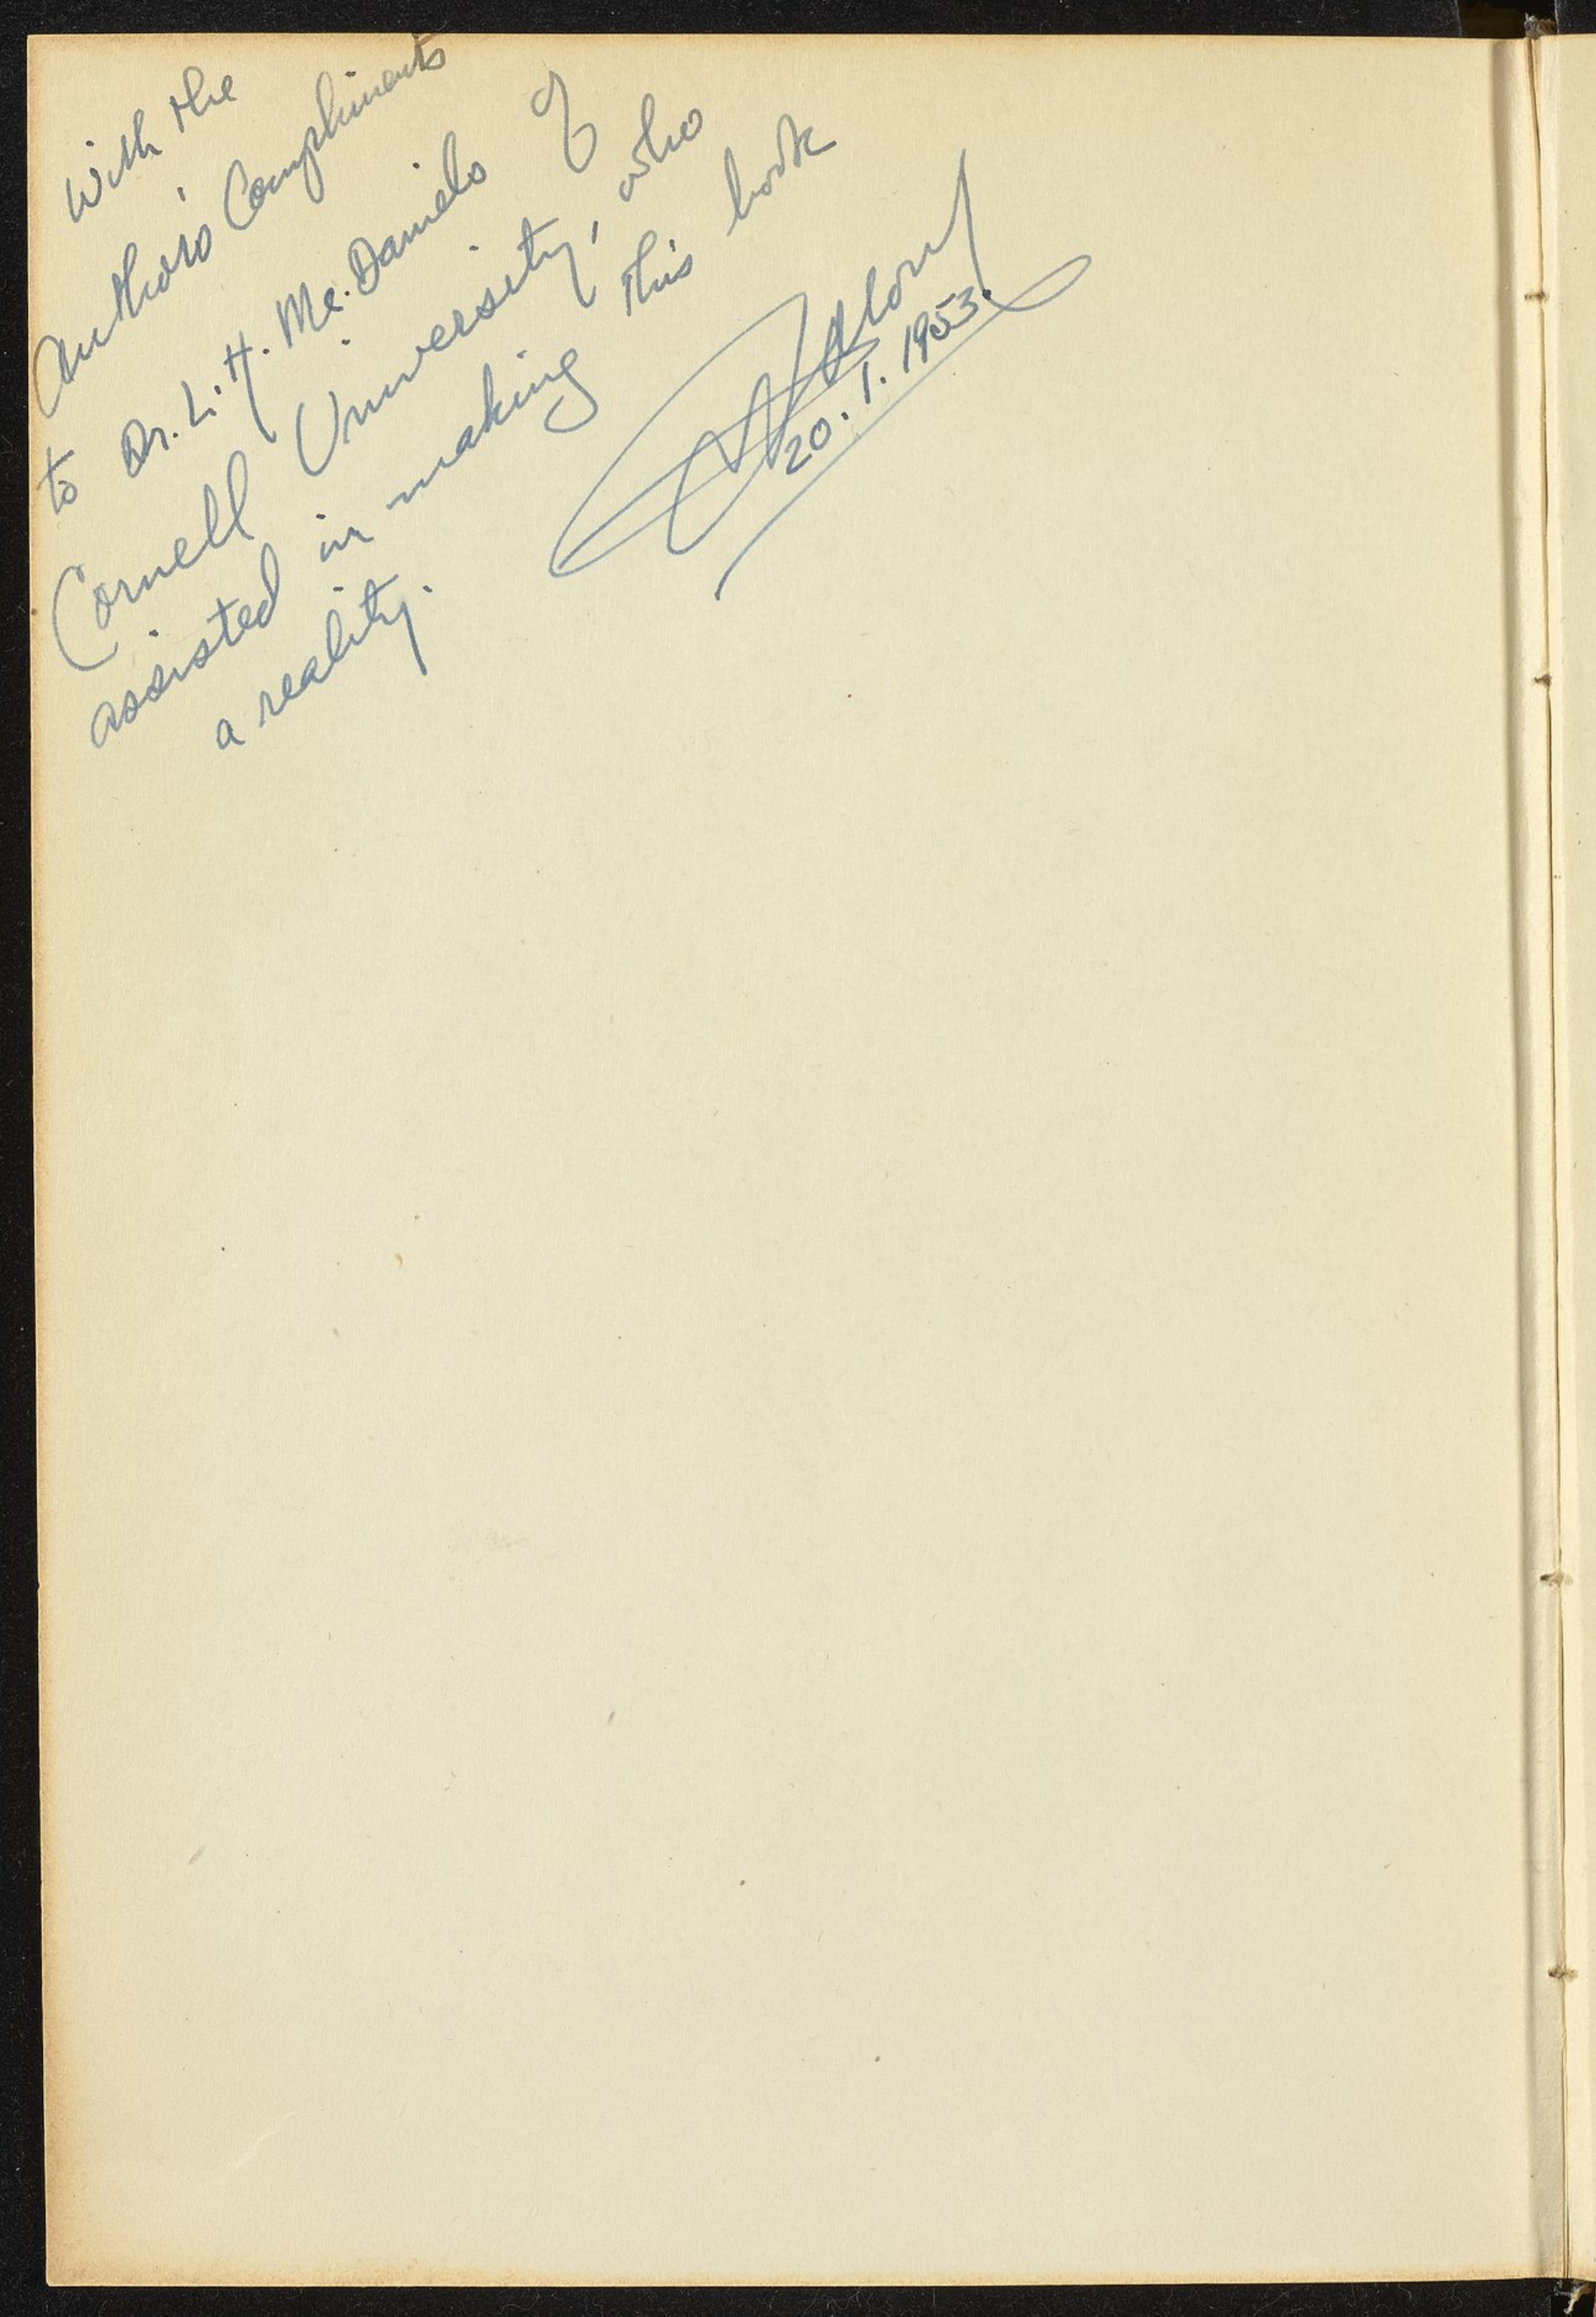 With the
Author's Compliments
to Dr. L. H. Mc.Daniels of
Cornell University, who
assisted in making this book
a reality.
20. 1. 1953.